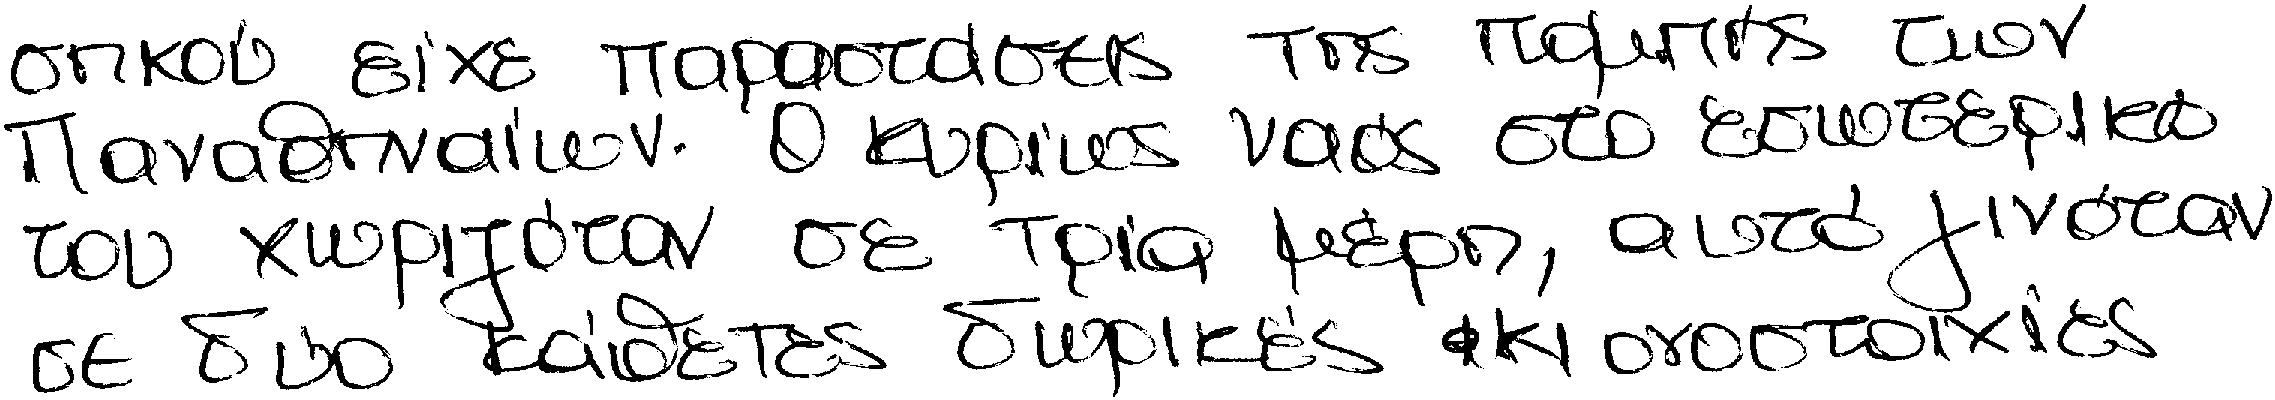 σηκού είχε παραστάσεις της πομπής των
Παναθηναίων. Ο κυρίως ναός στο εσωτερικό
του χωριζόταν σε τρία μέρη, αυτό γινόταν
σε δύο κάθετες δωρικές κιονοστοιχίες